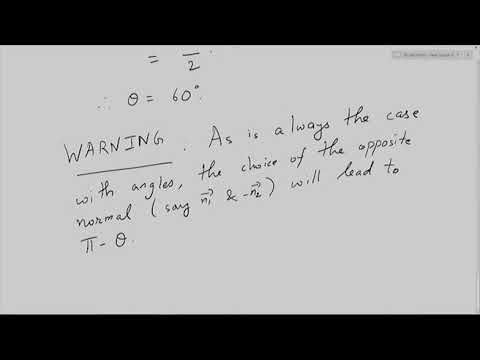 = — 2 .
∴ θ = 60°.
WARNING. As is always the case
with angles, the choice of the opposite
normal (say n₁⃗ & -n₂⃗) will lead to
π - θ.